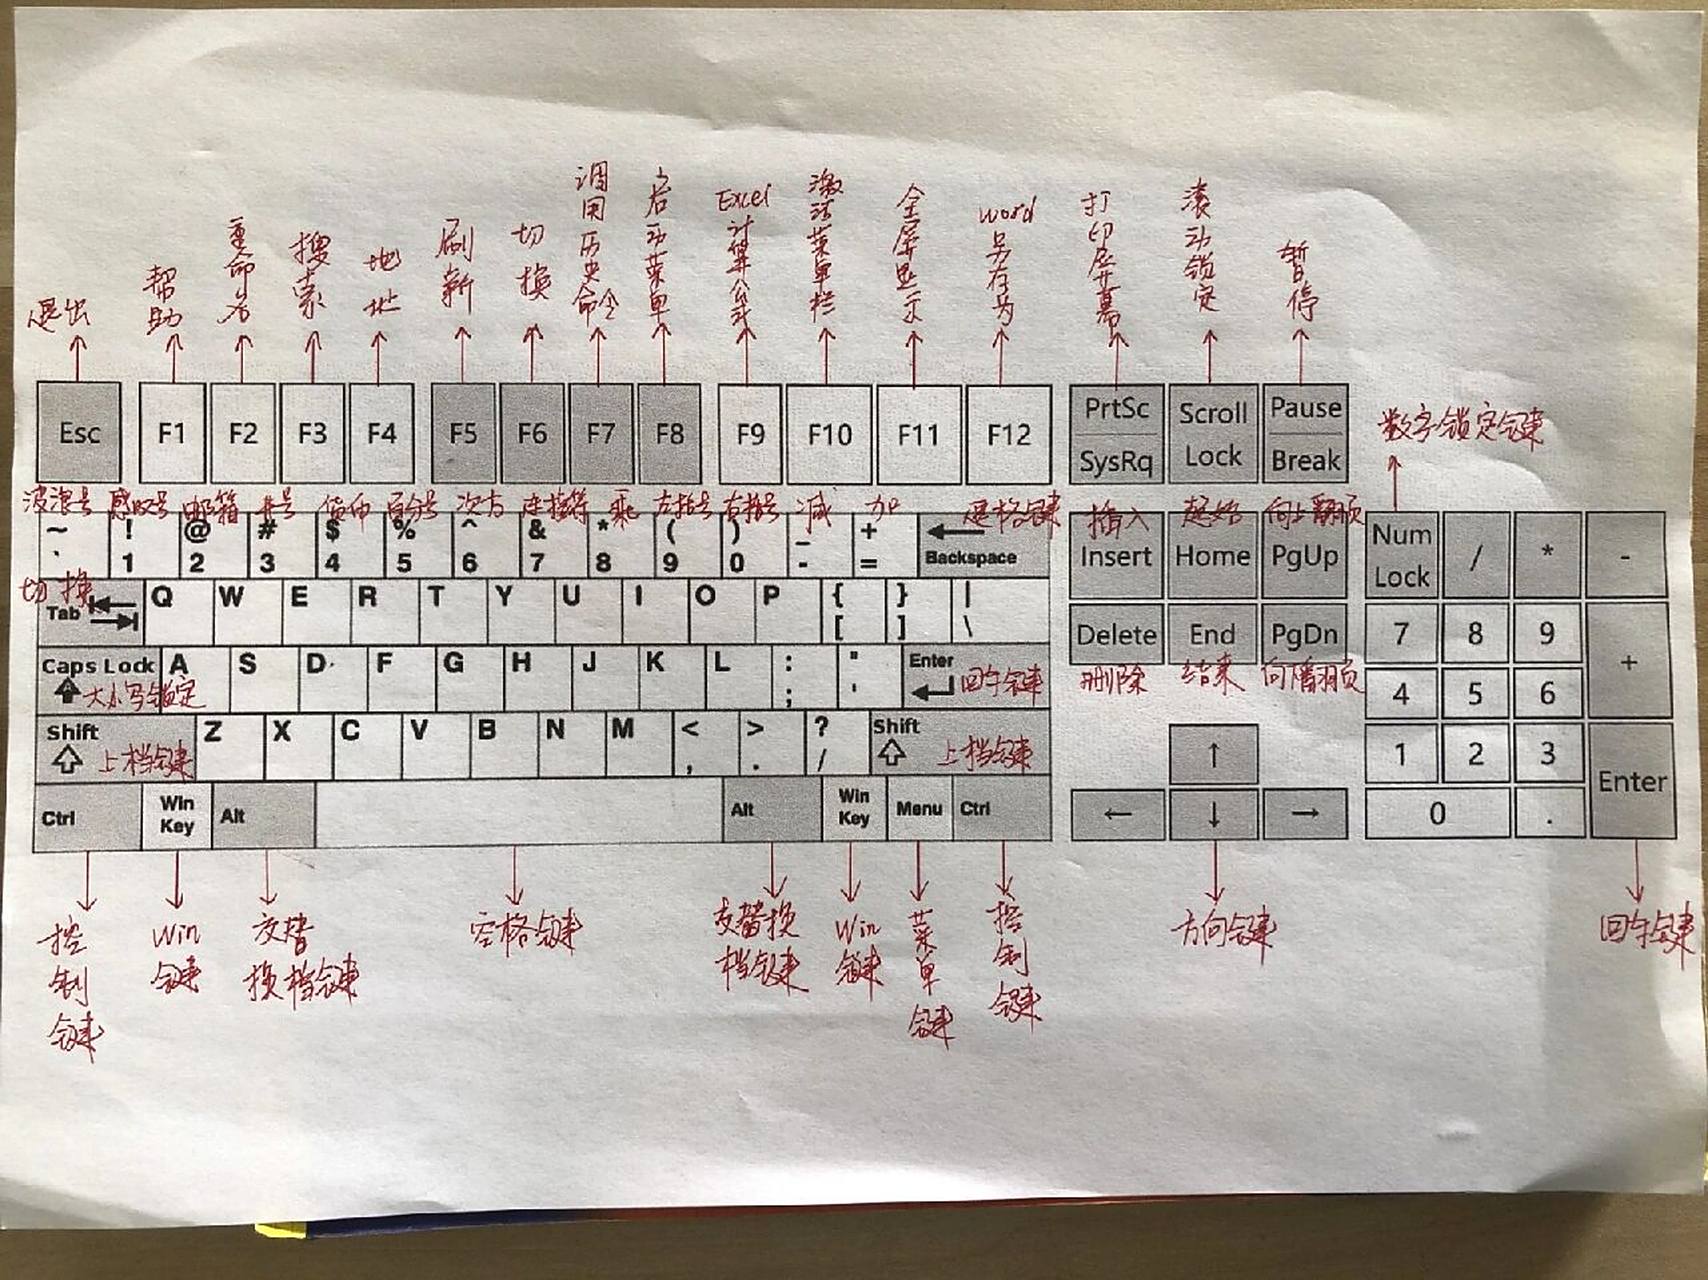 退出 帮助 重命名 搜索 地址 刷新 切换 调用历史命令 启动菜单 Excel计算公式 激活菜单栏 全屏显示 word另存为 打印屏幕 滚动锁定 暂停
Esc F1 F2 F3 F4 F5 F6 F7 F8 F9 F10 F11 F12 PrtSc SysRq Scroll Lock Pause Break
数字锁定键
波浪号 感叹号 邮箱 井号 货币 百分号 次方 连接符 乘 左括号 右括号 减 加 退格键 插入 起始 向上翻页
~ ! @ # $ % ^ & * ( ) _ + ← Backspace Insert Home PgUp Num Lock / * -
` 1 2 3 4 5 6 7 8 9 0 - =
切换
Tab Q W E R T Y U I O P { } |
[ ] \
Delete End PgDn 7 8 9 +
删除 结束 向下翻页
Caps Lock A S D F G H J K L : " Enter
大小写锁定 ; ' 回车键
4 5 6
Shift Z X C V B N M < > ? Shift
上档键 , . / 上档键
↑ 1 2 3 Enter
Ctrl Win Key Alt Alt Win Key Menu Ctrl ← ↓ → 0 .
控制键 Win键 交替换档键 空格键 交替换档键 Win键 菜单键 控制键 方向键 回车键